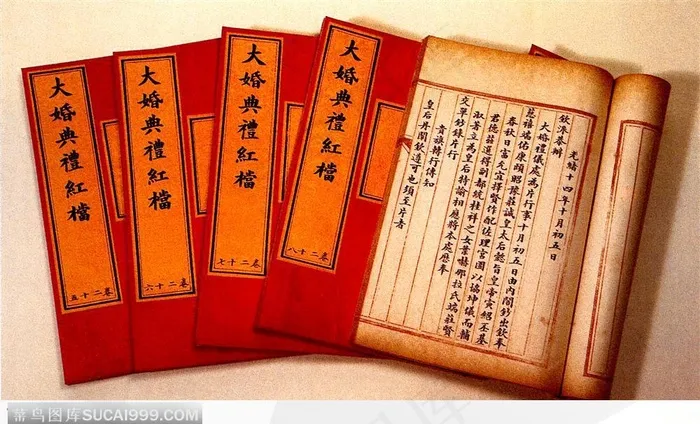 大婚典禮紅檔
卷二十五
大婚典禮紅檔
卷二十六
大婚典禮紅檔
卷二十七
大婚典禮紅檔
卷二十八
光緒十四年十月初五日
欽派恭辦
大婚禮儀處為片行事十月初五日由內閣鈔出欽奉
慈禧端佑康頤昭豫莊誠皇太后懿旨皇帝寅紹丕基
春秋日富允宜擇賢作配佐理宮闈以協坤儀而輔
君德茲選得副都統桂祥之女葉赫那拉氏端莊賢
淑著立為皇后特諭相應將本處應奉
交單鈔錄片行
貴旗轉行傳知
皇后丹闡欽遵可也須至片者
菜鸟图库SUCAI999.COM